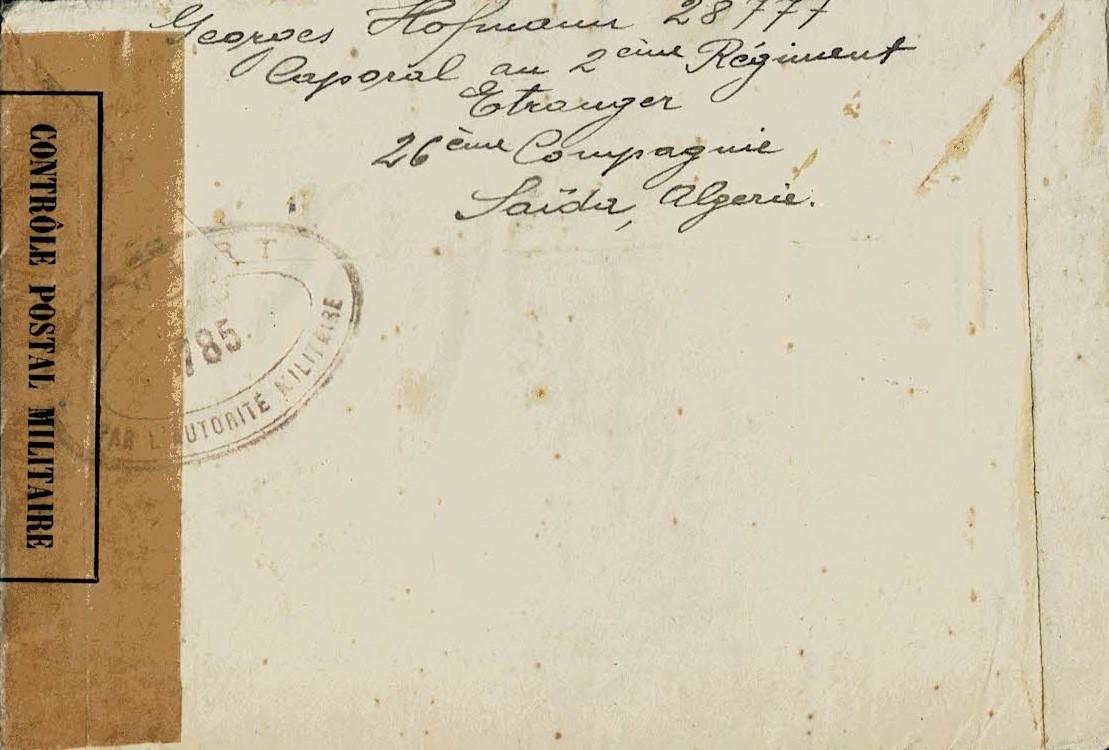 Georges Hofmann 28777
Caporal au 2ème Régiment
Etranger
26ème Compagnie
Saïda, Algerie.
CONTRÔLE POSTAL MILITAIRE
785.
PAR L'AUTORITÉ MILITAIRE